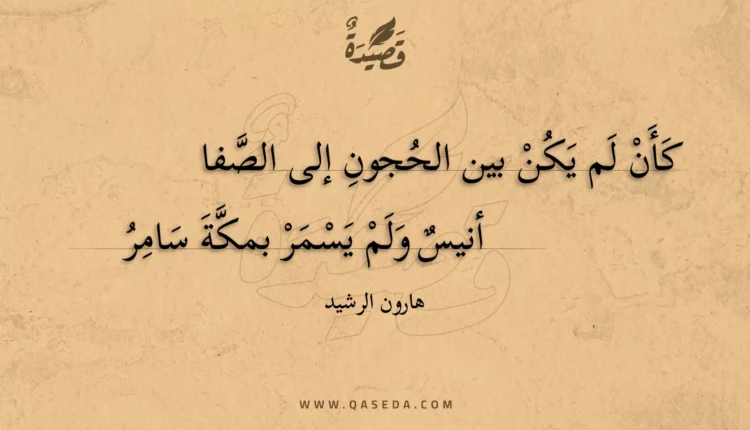 قَصِيْدَةٌ
كَأَنْ لَم يَكُنْ بين الحُجونِ إلى الصَّفا
أنيسٌ وَلَمْ يَسْمَرْ بمكَّةَ سَامِرُ
هارون الرشيد
WWW.QASEDA.COM